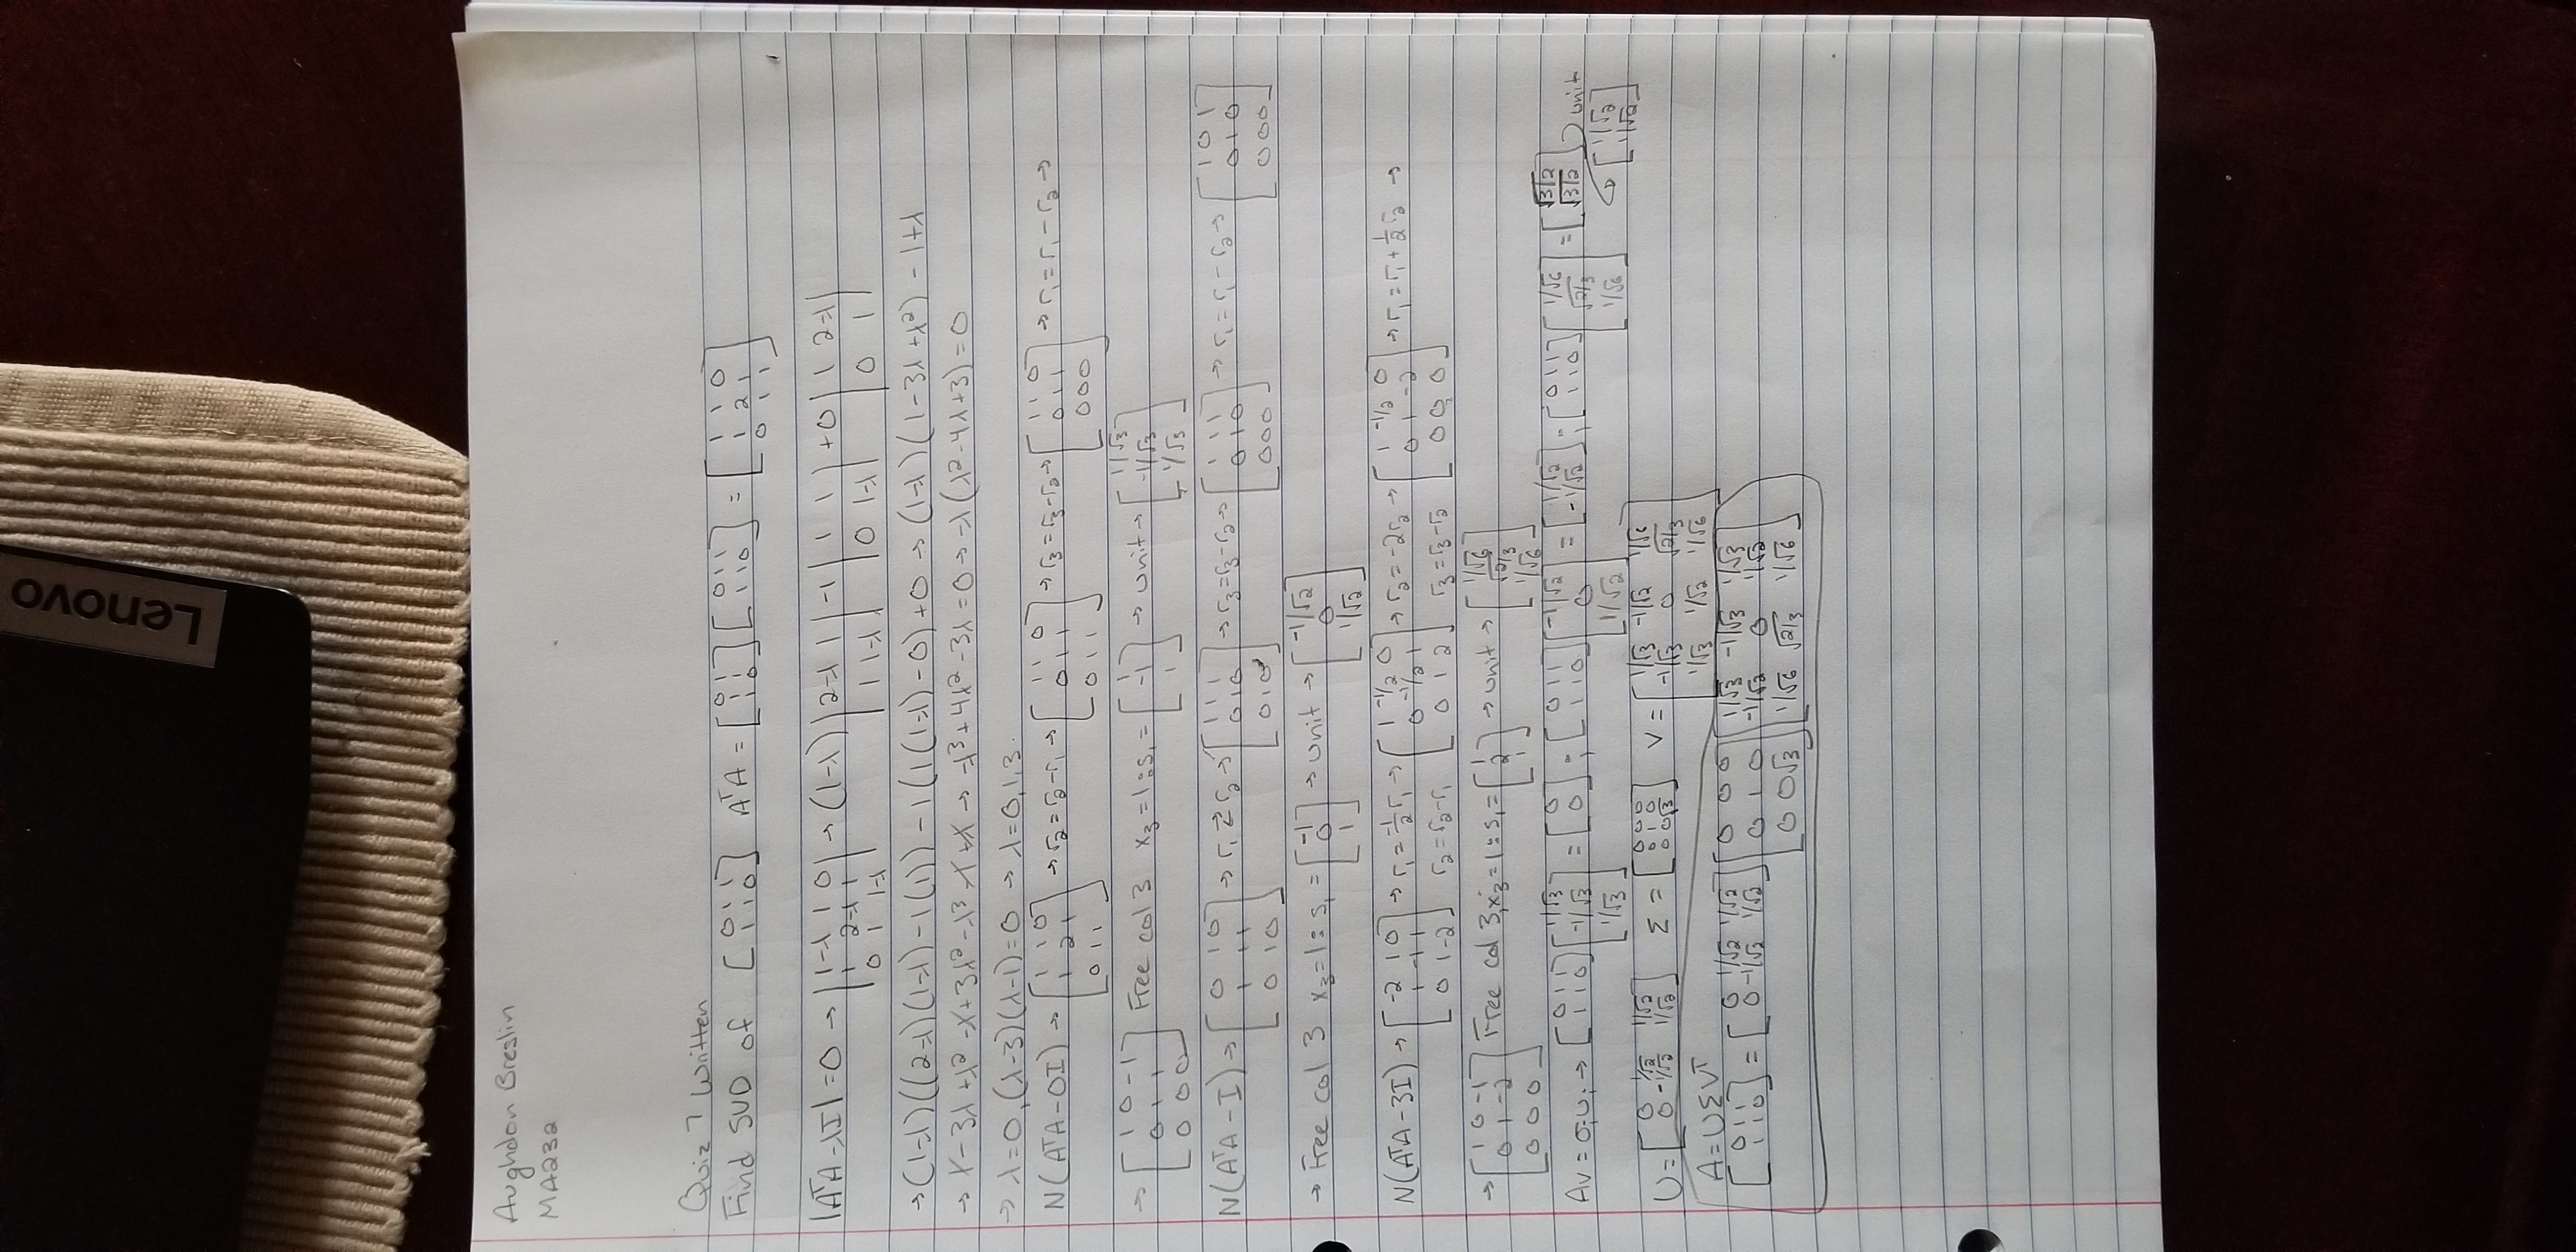 Lenovo
Aughdon Breslin
MA232
Quiz 7 Written
Find SVD of [0 1 1; 1 1 0] AᵀA = [0 1; 1 1; 1 0][0 1 1; 1 1 0] = [1 1 0; 1 2 1; 0 1 1]
|AᵀA-λI|=0 → |1-λ 1 0; 1 2-λ 1; 0 1 1-λ| → (1-λ)|2-λ 1; 1 1-λ| -1|1 1; 0 1-λ| +0|1 2-λ; 0 1|
→ (1-λ)((2-λ)(1-λ)-1(1)) -1(1(1-λ)-0)+0 → (1-λ)(1-3λ+λ²) -1+λ
→ 1-3λ+λ²-λ+3λ²-λ³-1+λ → -λ³+4λ²-3λ=0 → -λ(λ²-4λ+3)=0
→ λ=0, (λ-3)(λ-1)=0 → λ=0,1,3.
N(AᵀA-0I) → [1 1 0; 1 2 1; 0 1 1] → r₂=r₂-r₁ → [1 1 0; 0 1 1; 0 1 1] → r₃=r₃-r₂ → [1 1 0; 0 1 1; 0 0 0] → r₁=r₁-r₂ →
→ [1 0 -1; 0 1 1; 0 0 0] Free col 3 x₃=1: s₁ = [1; -1; 1] → unit → [1/√3; -1/√3; 1/√3]
N(AᵀA-I) → [0 1 0; 1 1 1; 0 1 0] → r₁ ⇄ r₂ → [1 1 1; 0 1 0; 0 1 0] → r₃=r₃-r₂ → [1 1 1; 0 1 0; 0 0 0] → r₁=r₁-r₂ → [1 0 1; 0 1 0; 0 0 0]
→ Free col 3 x₃=1: s₁ = [-1; 0; 1] → unit → [-1/√2; 0; 1/√2]
N(AᵀA-3I) → [-2 1 0; 1 -1 1; 0 1 -2] → r₁=-1/2r₁ → r₂=r₂-r₁ [1 -1/2 0; 0 -1/2 1; 0 1 2] → r₂=-2r₂ → r₃=r₃-r₂ [1 -1/2 0; 0 1 -2; 0 0 0] → r₁=r₁+1/2r₂ →
→ [1 0 -1; 0 1 -2; 0 0 0] Free col 3, x₃=1: s₁ = [1; 2; 1] → unit → [1/√6; √2/3; 1/√6]
Av = σᵢuᵢ → [0 1 1; 1 1 0][1/√3; -1/√3; 1/√3] = [0; 0]; [0 1 1; 1 1 0][-1/√2; 0; 1/√2] = [1/√2; -1/√2]; [0 1 1; 1 1 0][1/√6; √2/3; 1/√6] = [√3/2; √3/2] unit [1/√2; 1/√2]
U = [0 1/√2 1/√2; 0 -1/√2 1/√2] Σ = [0 0 0; 0 1 0; 0 0 √3] V = [1/√3 -1/√2 1/√6; -1/√3 0 √2/3; 1/√3 1/√2 1/√6]
A = UΣVᵀ
[0 1 1; 1 1 0] = [0 1/√2 1/√2; 0 -1/√2 1/√2][0 0 0; 0 1 0; 0 0 √3][1/√3 -1/√3 1/√3; -1/√2 0 1/√2; 1/√6 √2/3 1/√6]